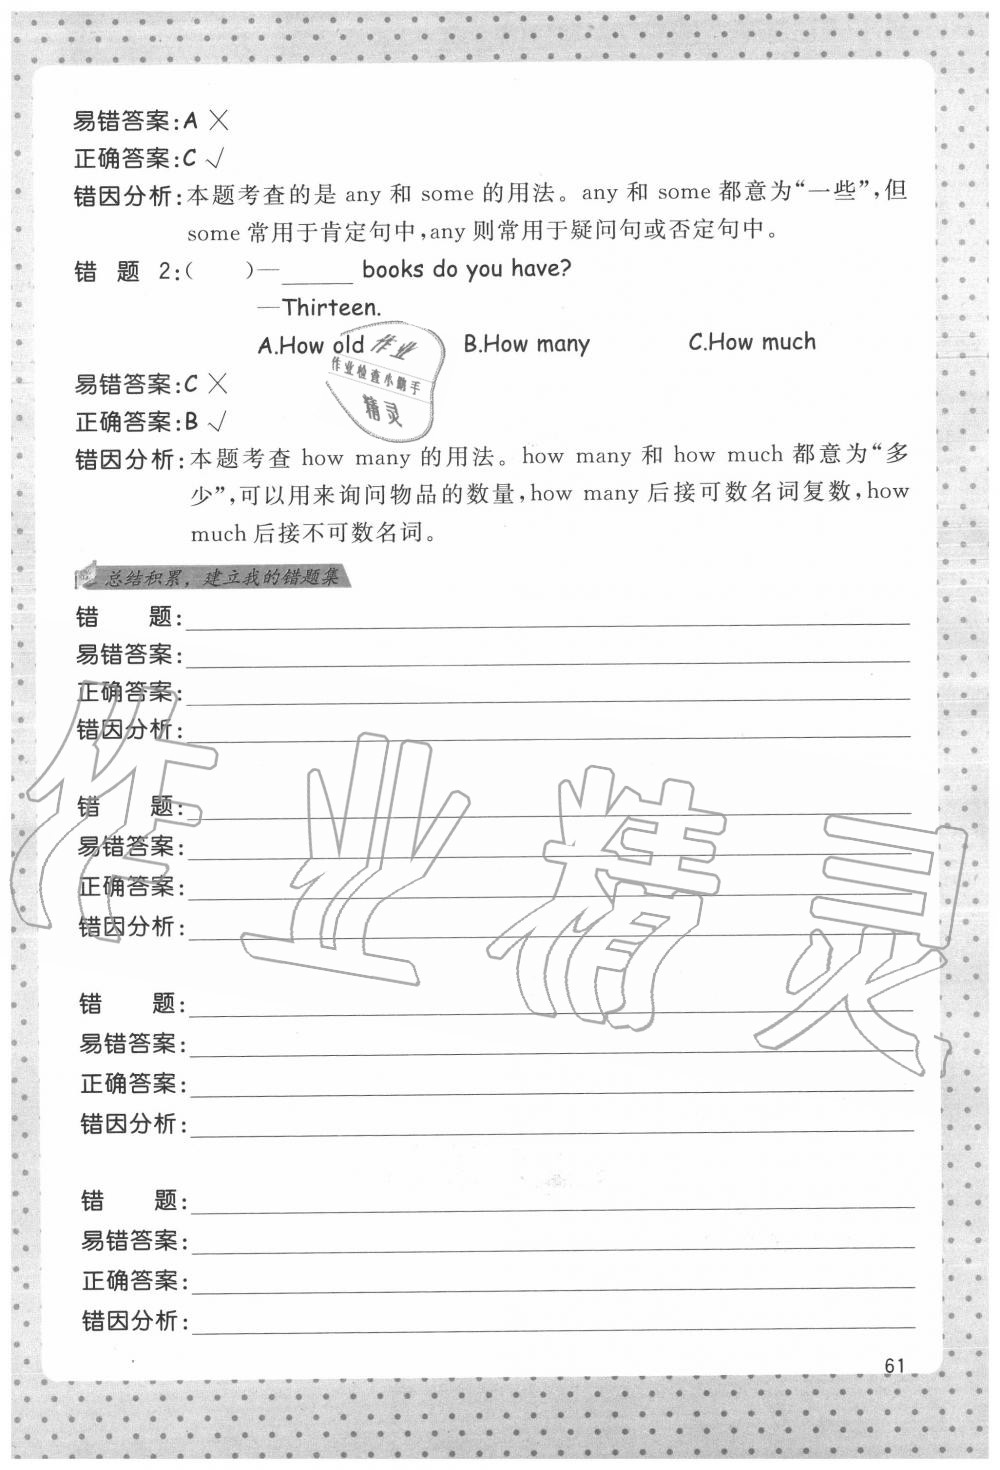 易错答案:A ×
正确答案:C √
错因分析:本题考查的是 any 和 some 的用法。any 和 some 都意为“一些”,但
some 常用于肯定句中,any 则常用于疑问句或否定句中。
错 题 2:( )—______ books do you have?
—Thirteen.
A.How old B.How many C.How much
作业
作业检查小助手
精灵
易错答案:C ×
正确答案:B √
错因分析:本题考查 how many 的用法。how many 和 how much 都意为“多
少”,可以用来询问物品的数量,how many 后接可数名词复数,how
much 后接不可数名词。
总结积累，建立我的错题集
错 题:
易错答案:
正确答案:
错因分析:
作业精灵
错 题:
易错答案:
正确答案:
错因分析:
错 题:
易错答案:
正确答案:
错因分析:
错 题:
易错答案:
正确答案:
错因分析:
61